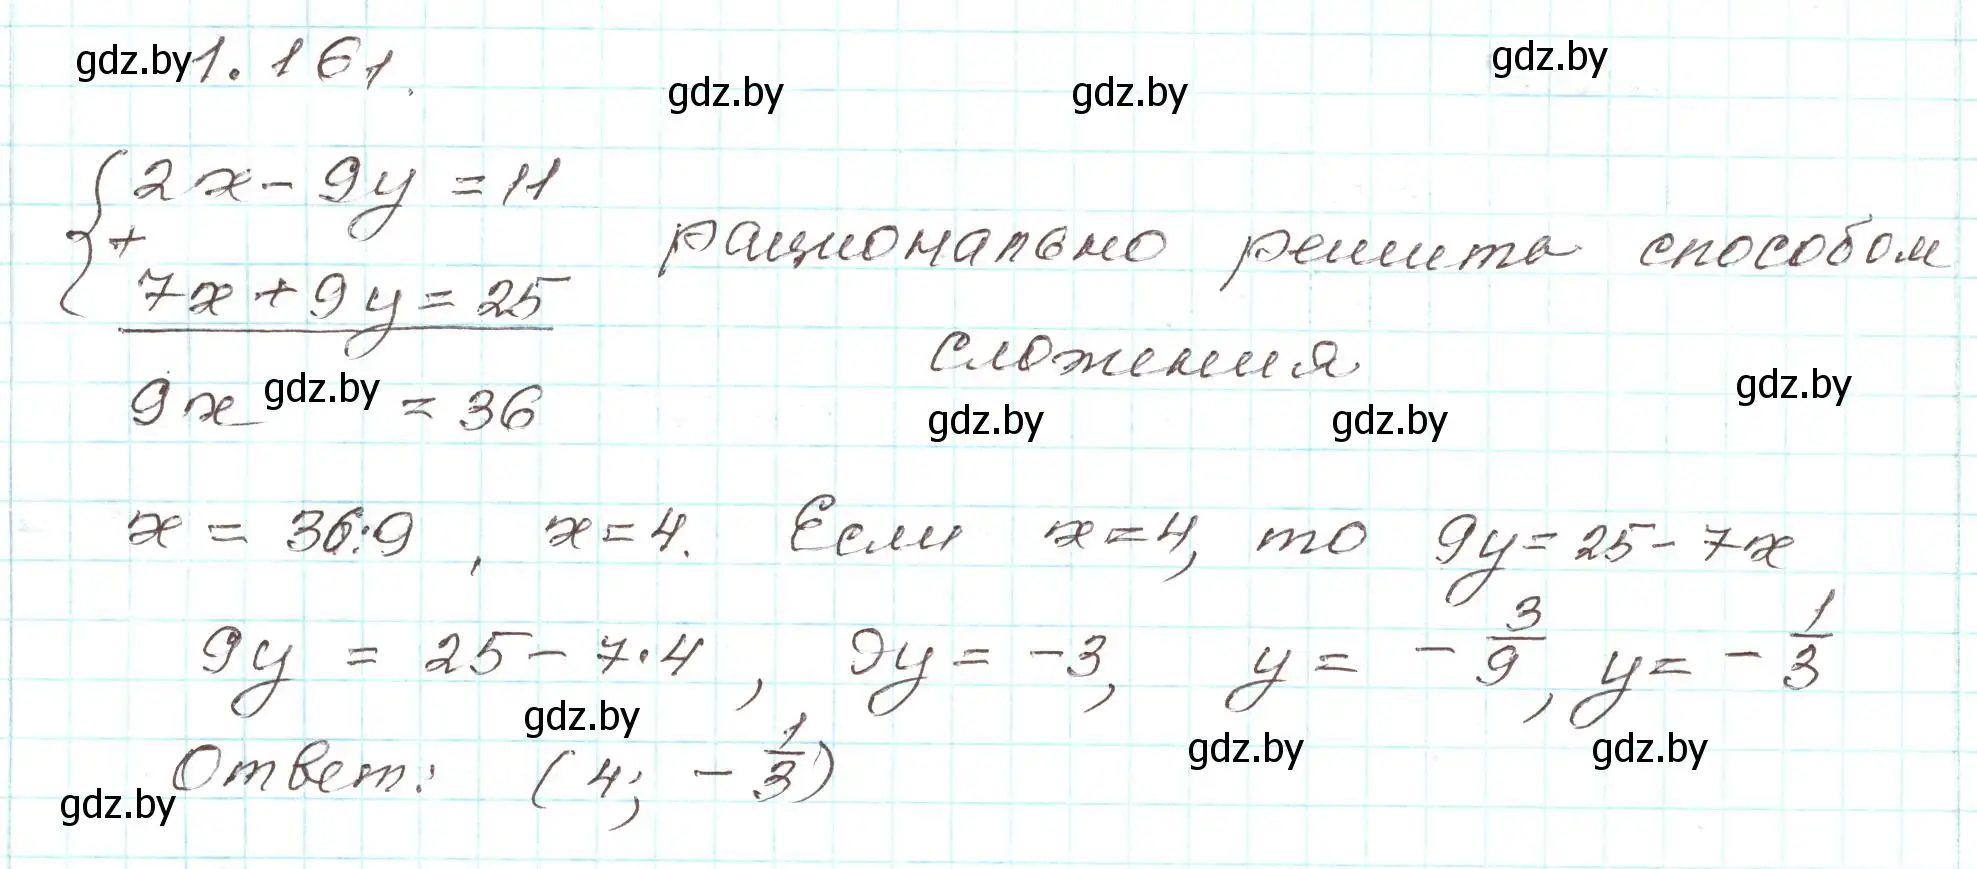 gdz.by 1.161. gdz.by
gdz.by gdz.by
{ 2x - 9y = 11
+ рационально решить способом
7x + 9y = 25
сложения
9x gdz.by = 36 gdz.by
gdz.by gdz.by
x = 36:9, x = 4. Если x = 4, то 9y = 25 - 7x
9y = 25 - 7·4, 9y = -3, y = - 3/9, y = - 1/3
gdz.by gdz.by gdz.by
Ответ: (4; - 1/3)
gdz.by